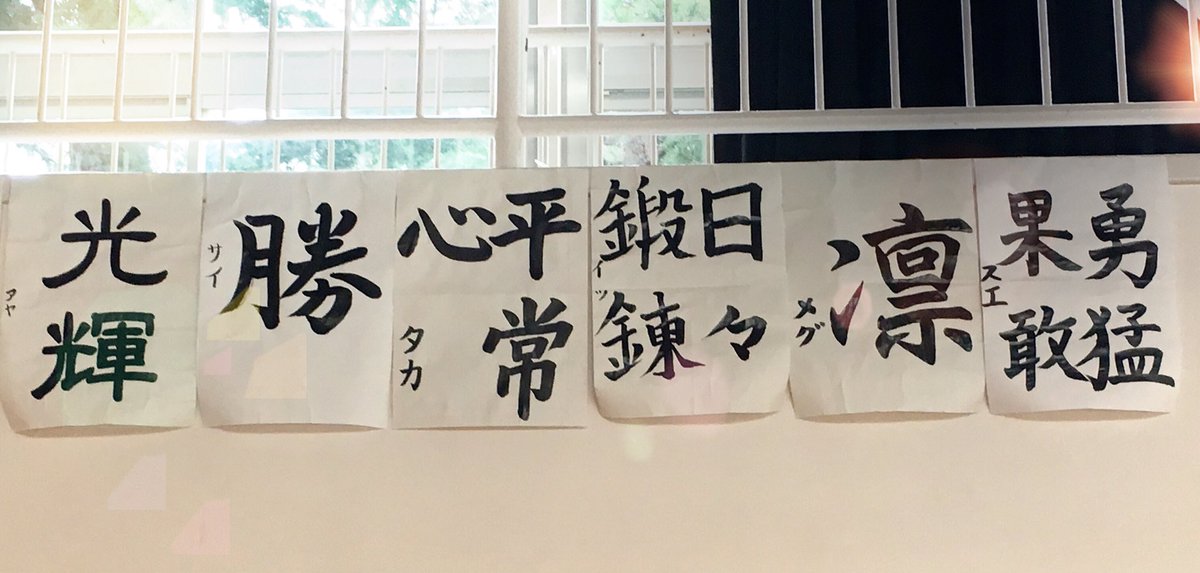 勇猛
果敢
スエ
凛
メグ
日々
鍛錬
イツ
平常
心
タカ
勝
サイ
光輝
アヤ